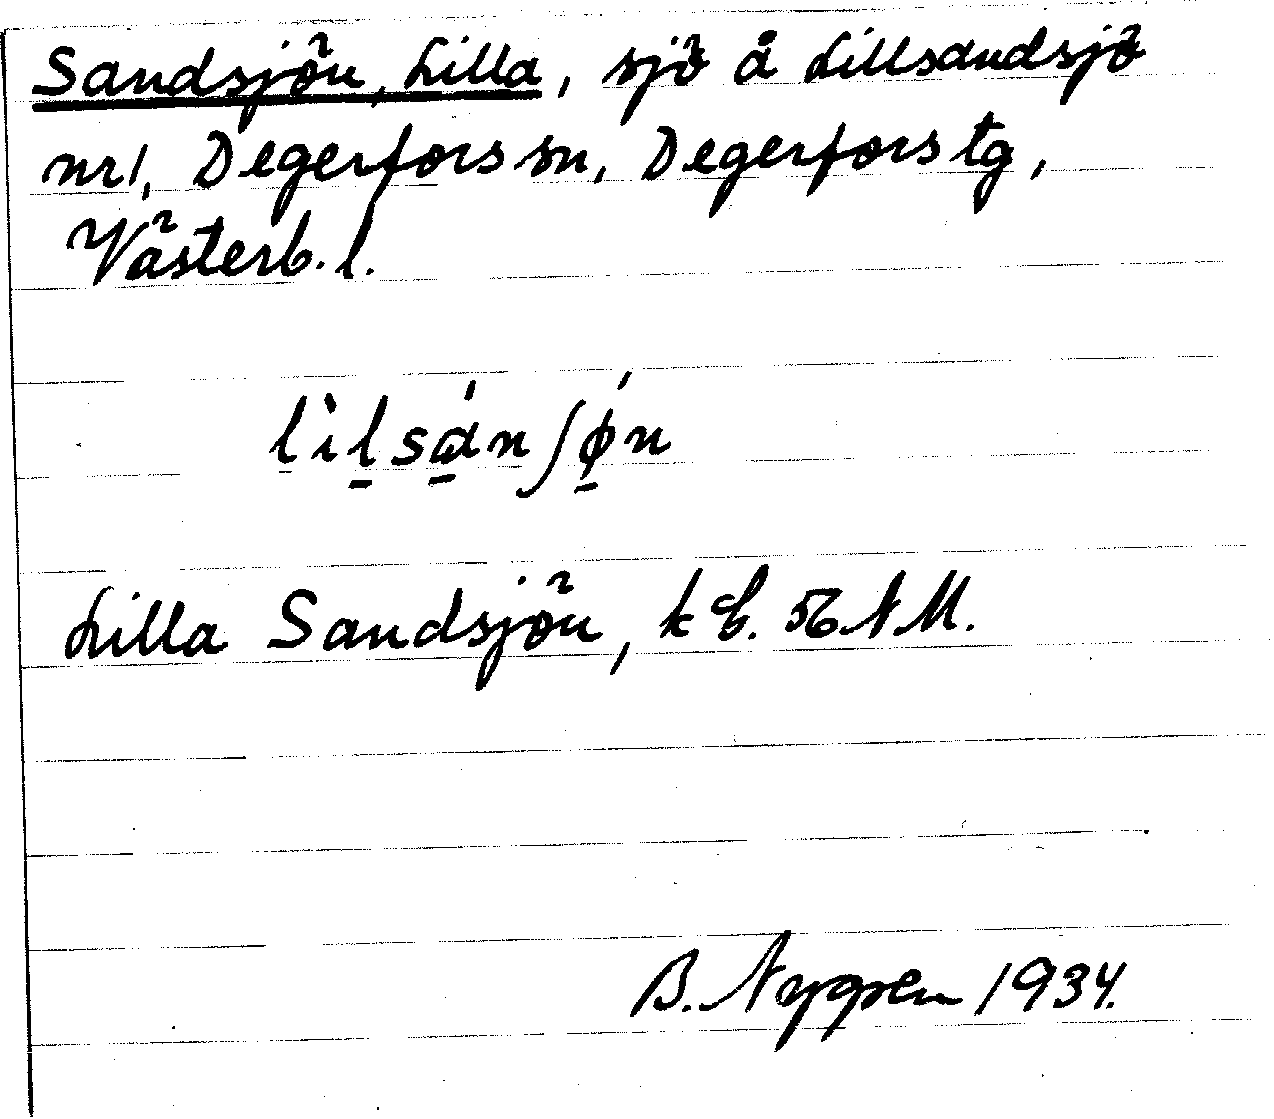 Sandsjön, Lilla, sjö å Lillsandsjö
nr1, Degerfors sn, Degerfors tg,
Västerb. l.
lìlsánʃǿn
Lilla Sandsjön, kbl. 56 NM.
B. Nygren 1934.